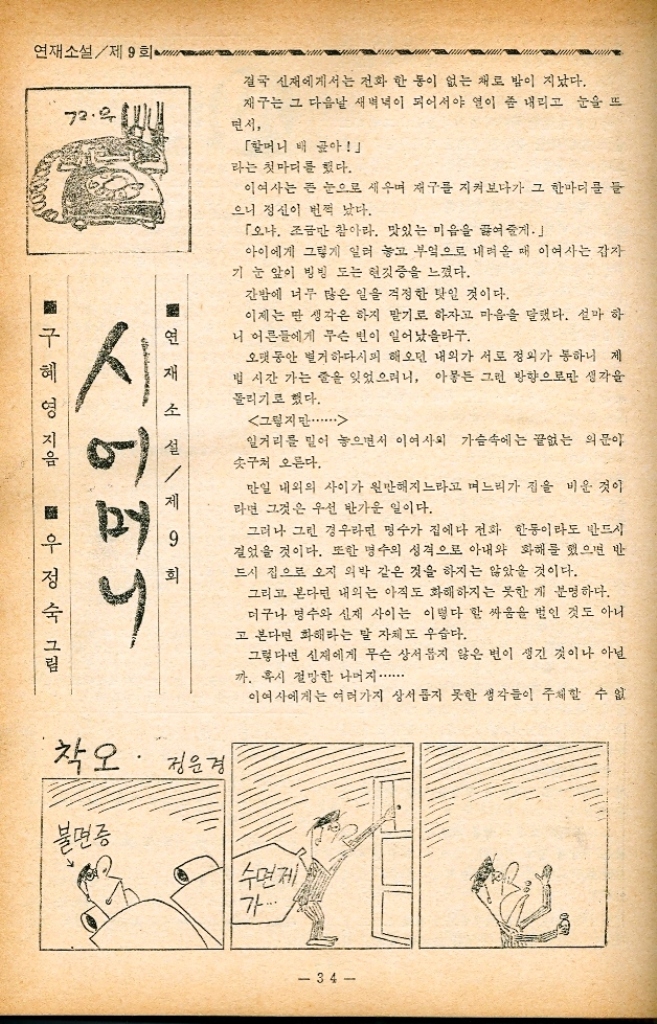 연재소설／제 9 회
72.우
■ 연재소설／제 9 회
시어머니
■ 구혜영 지음 ■ 우정숙 그림
결국 신재에게서는 전화 한 통이 없는 채로 밤이 지났다.
재구는 그 다음날 새벽녘이 되어서야 열이 좀 내리고 눈을 뜨
면서,
「할머니 배 곺아！」
라는 첫마디를 했다.
이여사는 뜬 눈으로 세우며 재구를 지켜보다가 그 한마디를 들
으니 정신이 번쩍 났다.
「오냐. 조금만 참아라. 맛있는 미음을 끓여줄게.」
아이에게 그렇게 일러 놓고 부엌으로 내려올 때 이여사는 갑자
기 눈 앞이 빙빙 도는 현깃증을 느꼈다.
간밤에 너무 많은 일을 걱정한 탓인 것이다.
이제는 딴 생각은 하지 말기로 하자고 마음을 달랬다. 설마 하
니 어른들에게 무슨 변이 일어났을라구.
오랫동안 별거하다시피 해오던 내외가 서로 정회가 통하니 제
법 시간 가는 줄을 잊었으려니, 아뭏든 그런 방향으로만 생각을
돌리기로 했다.
<그렇지만……>
일거리를 밀어 놓으면서 이여사의 가슴속에는 끝없는 의문이
솟구쳐 오른다.
만일 내외의 사이가 원만해지느라고 며느리가 집을 비운 것이
라면 그것은 우선 반가운 일이다.
그러나 그런 경우라면 명수가 집에다 전화 한통이라도 반드시
걸었을 것이다. 또한 명수의 성격으로 아내와 화해를 했으면 반
드시 집으로 오지 외박 같은 것을 하지는 않았을 것이다.
그리고 본다면 내외는 아직도 화해하지는 못한 게 분명하다.
더구나 명수와 신재 사이는 이렇다 할 싸움을 벌인 것도 아니
고 본다면 화해라는 말 자체도 우습다.
그렇다면 신재에게 무슨 상서롭지 않은 변이 생긴 것이나 아닐
까. 혹시 절망한 나머지……
이여사에게는 여러가지 상서롭지 못한 생각들이 주체할 수 없
착오 · 정운경
불면증
수면제
가…
— 3 4 —